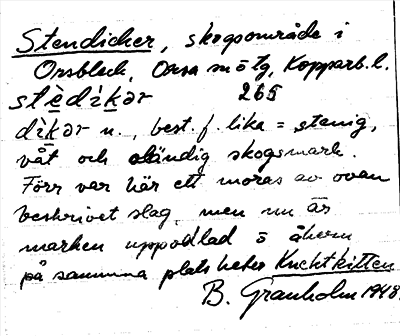 Stendicker, skogsområde i
Orsbleck, Orsa sn ö tg, Kopparb. l.
stèdìkər 265
dìkər n., best. f. lika = stenig,
våt och oländig skogsmark.
Förr var här ett moras av ovan
beskrivet slag, men nu är
marken uppodlad o åkern
på samma plats heter Knektkitten
B. Granholm 1948.